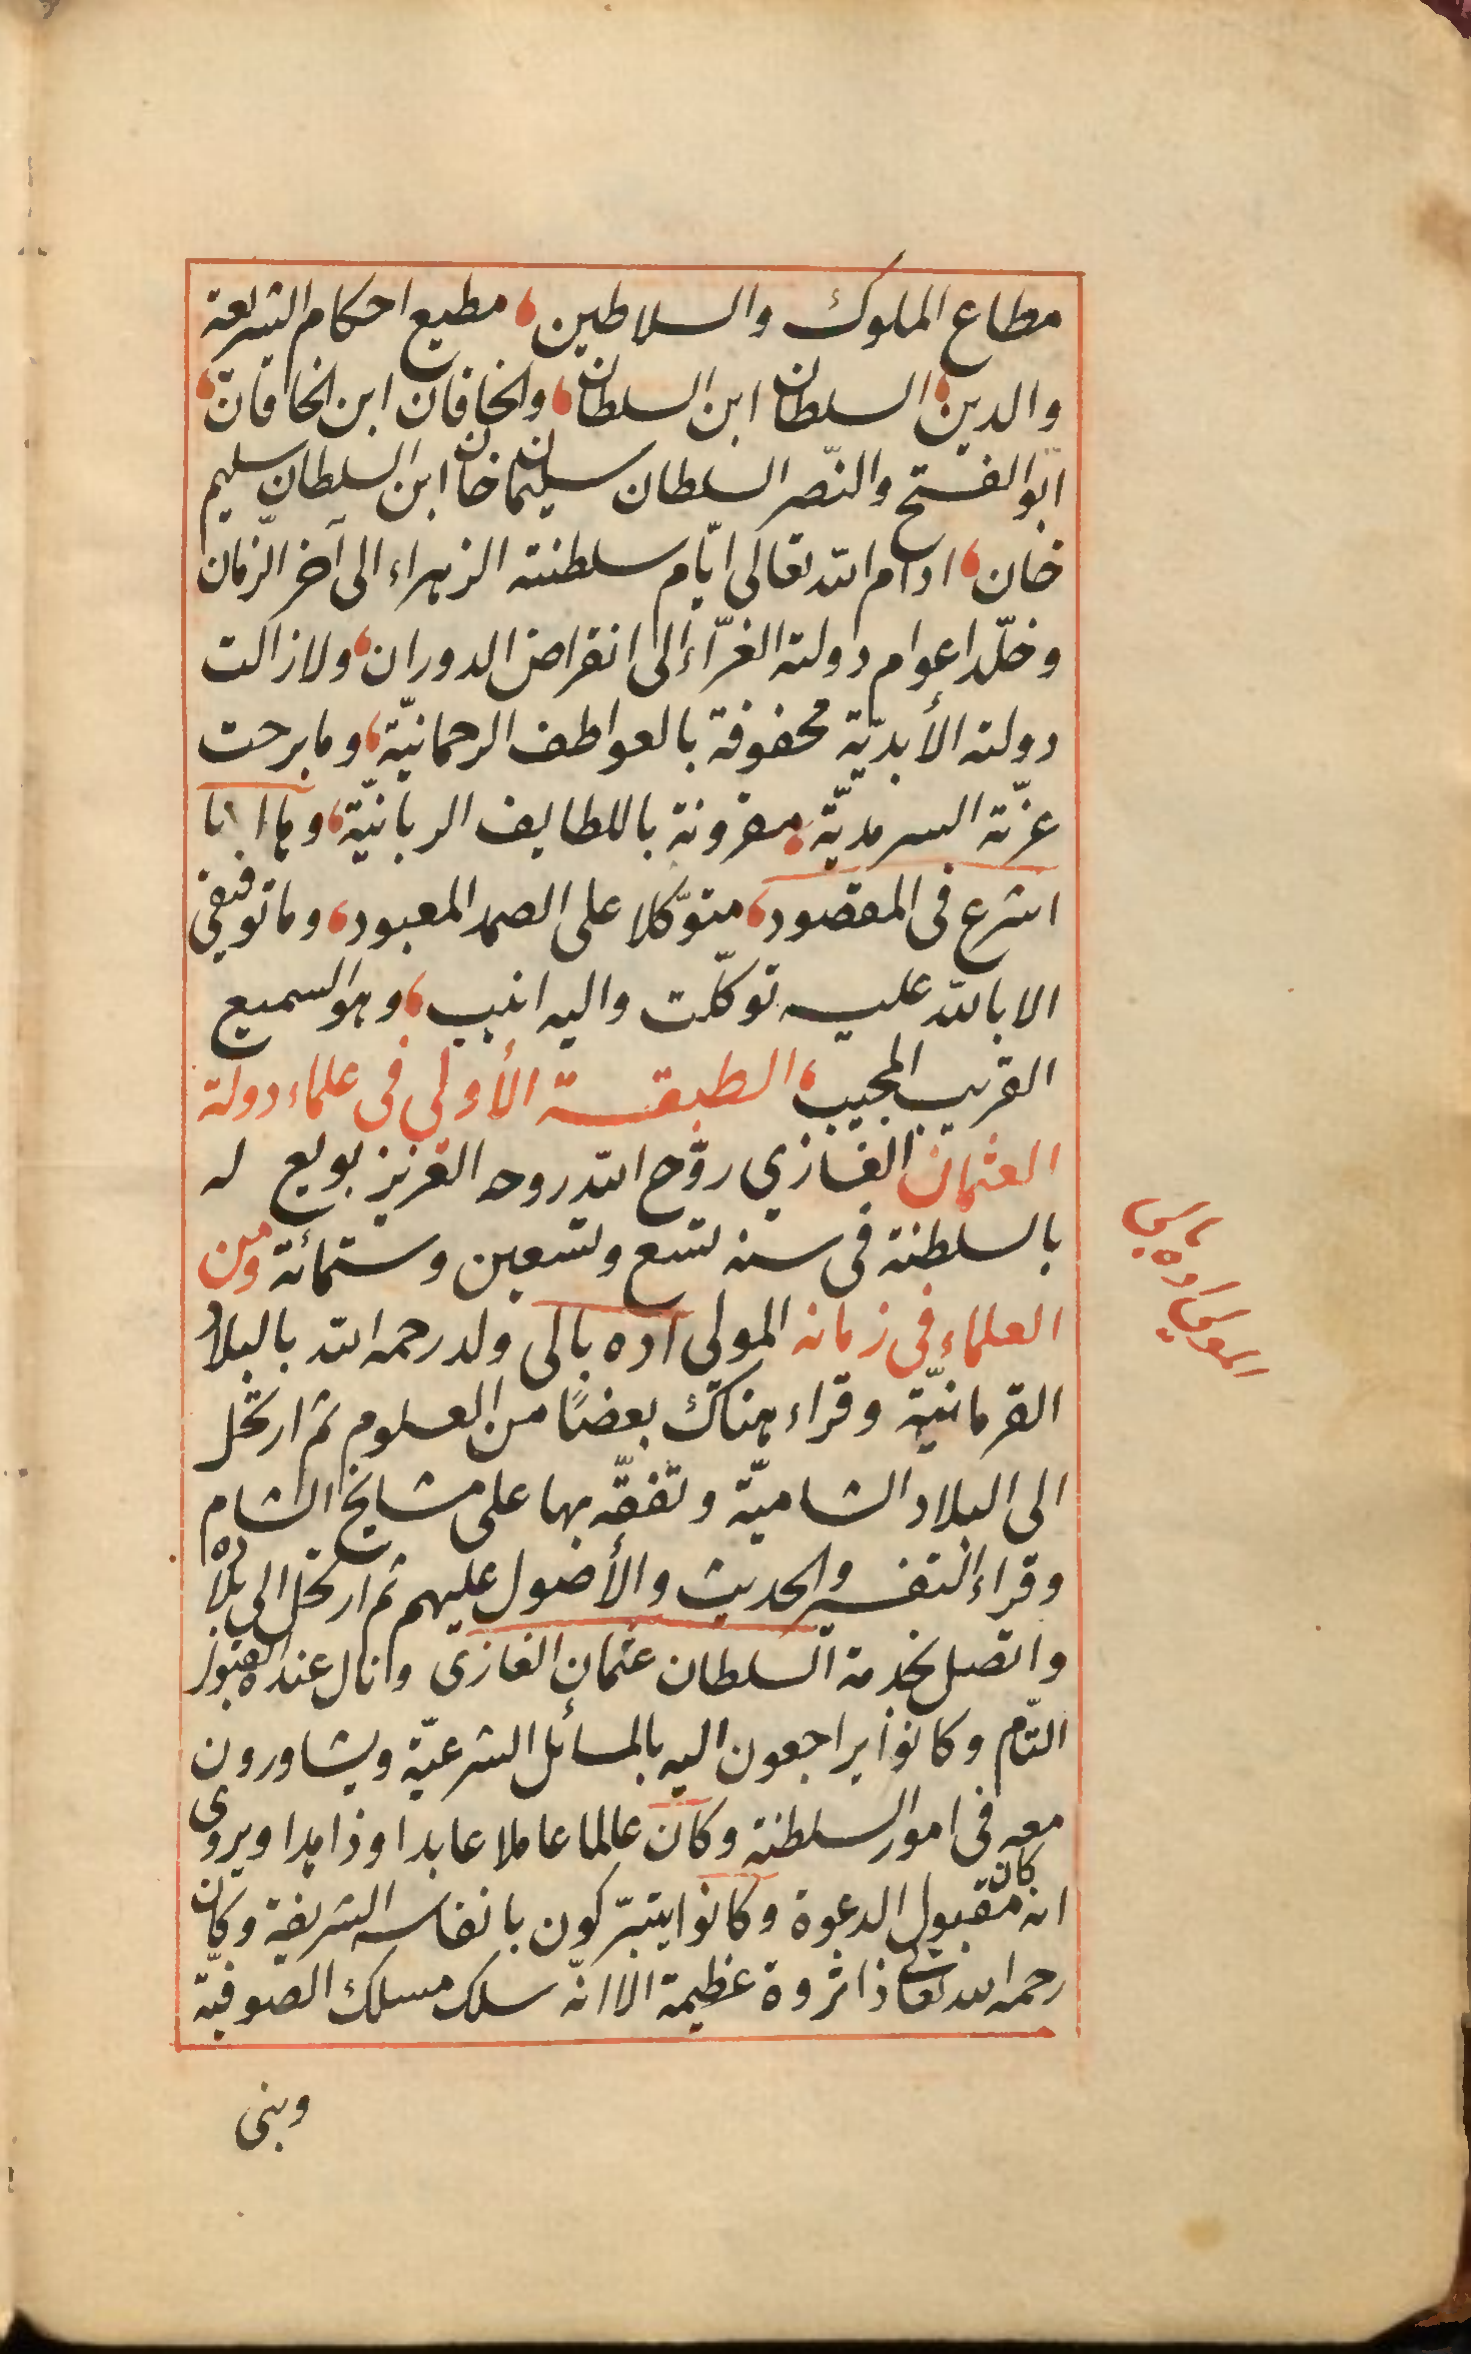 مطاع الملوك والسلاطين، مطيع احكام الشريعة
والدين، السلطان ابن السلطان، والخاقان ابن الخاقان،
ابو الفتح والنّصر السلطان سليمان خان ابن السلطان سليم
خان، ادام الله تعالى ايّام سلطنته الزهراء الى آخر الزّمان
وخلّد اعوام دولته الغرّاء الى انقراض الدوران، ولا زالت
دولته الأبديّة محفوفة بالعواطف الرحمانيّة، وما برحت
عزّته السرمديّة مقرونة باللطايف الربانيّة، وها انا
اشرع فى المقصود، متوكّلا على الصمد المعبود، وما توفيقى
الا بالله عليه توكّلت واليه انيب، وهو السميع
القريب المجيب، الطبقة الأولى فى علماء دولة
العثمان الغازي روّح الله روحه العزيز بويع له
بالسلطنة فى سنه تسع وتسعين وستمائة ومن
العلماء فى زمانه المولى اده بالى ولد رحمه الله بالبلاد
القرمانيّة وقراء هناك بعضًا من العلوم ثم ارتحل
الى البلاد الشاميّة وتفقّه بها على مشايخ الشام
وقراء التفسير والحديث والأصول عليهم ثم ارتحل الى بلاده
واتصل بخدمة السلطان عثمان الغازى ونال عنده القبول
التّام وكانوا يراجعون اليه بالمسائل الشرعيّة ويشاورون
معه فى امور السلطنة وكان عالما عاملا عابدا وزاهدا ويروى
انه كان مقبول الدعوة وكانوا يتبرّكون بانفاسه الشريفة وكان
رحمه الله تعالى ذا ثروة عظيمة الا انّه سلك مسلك الصوفيّة
وبنى
المولى اده بالى